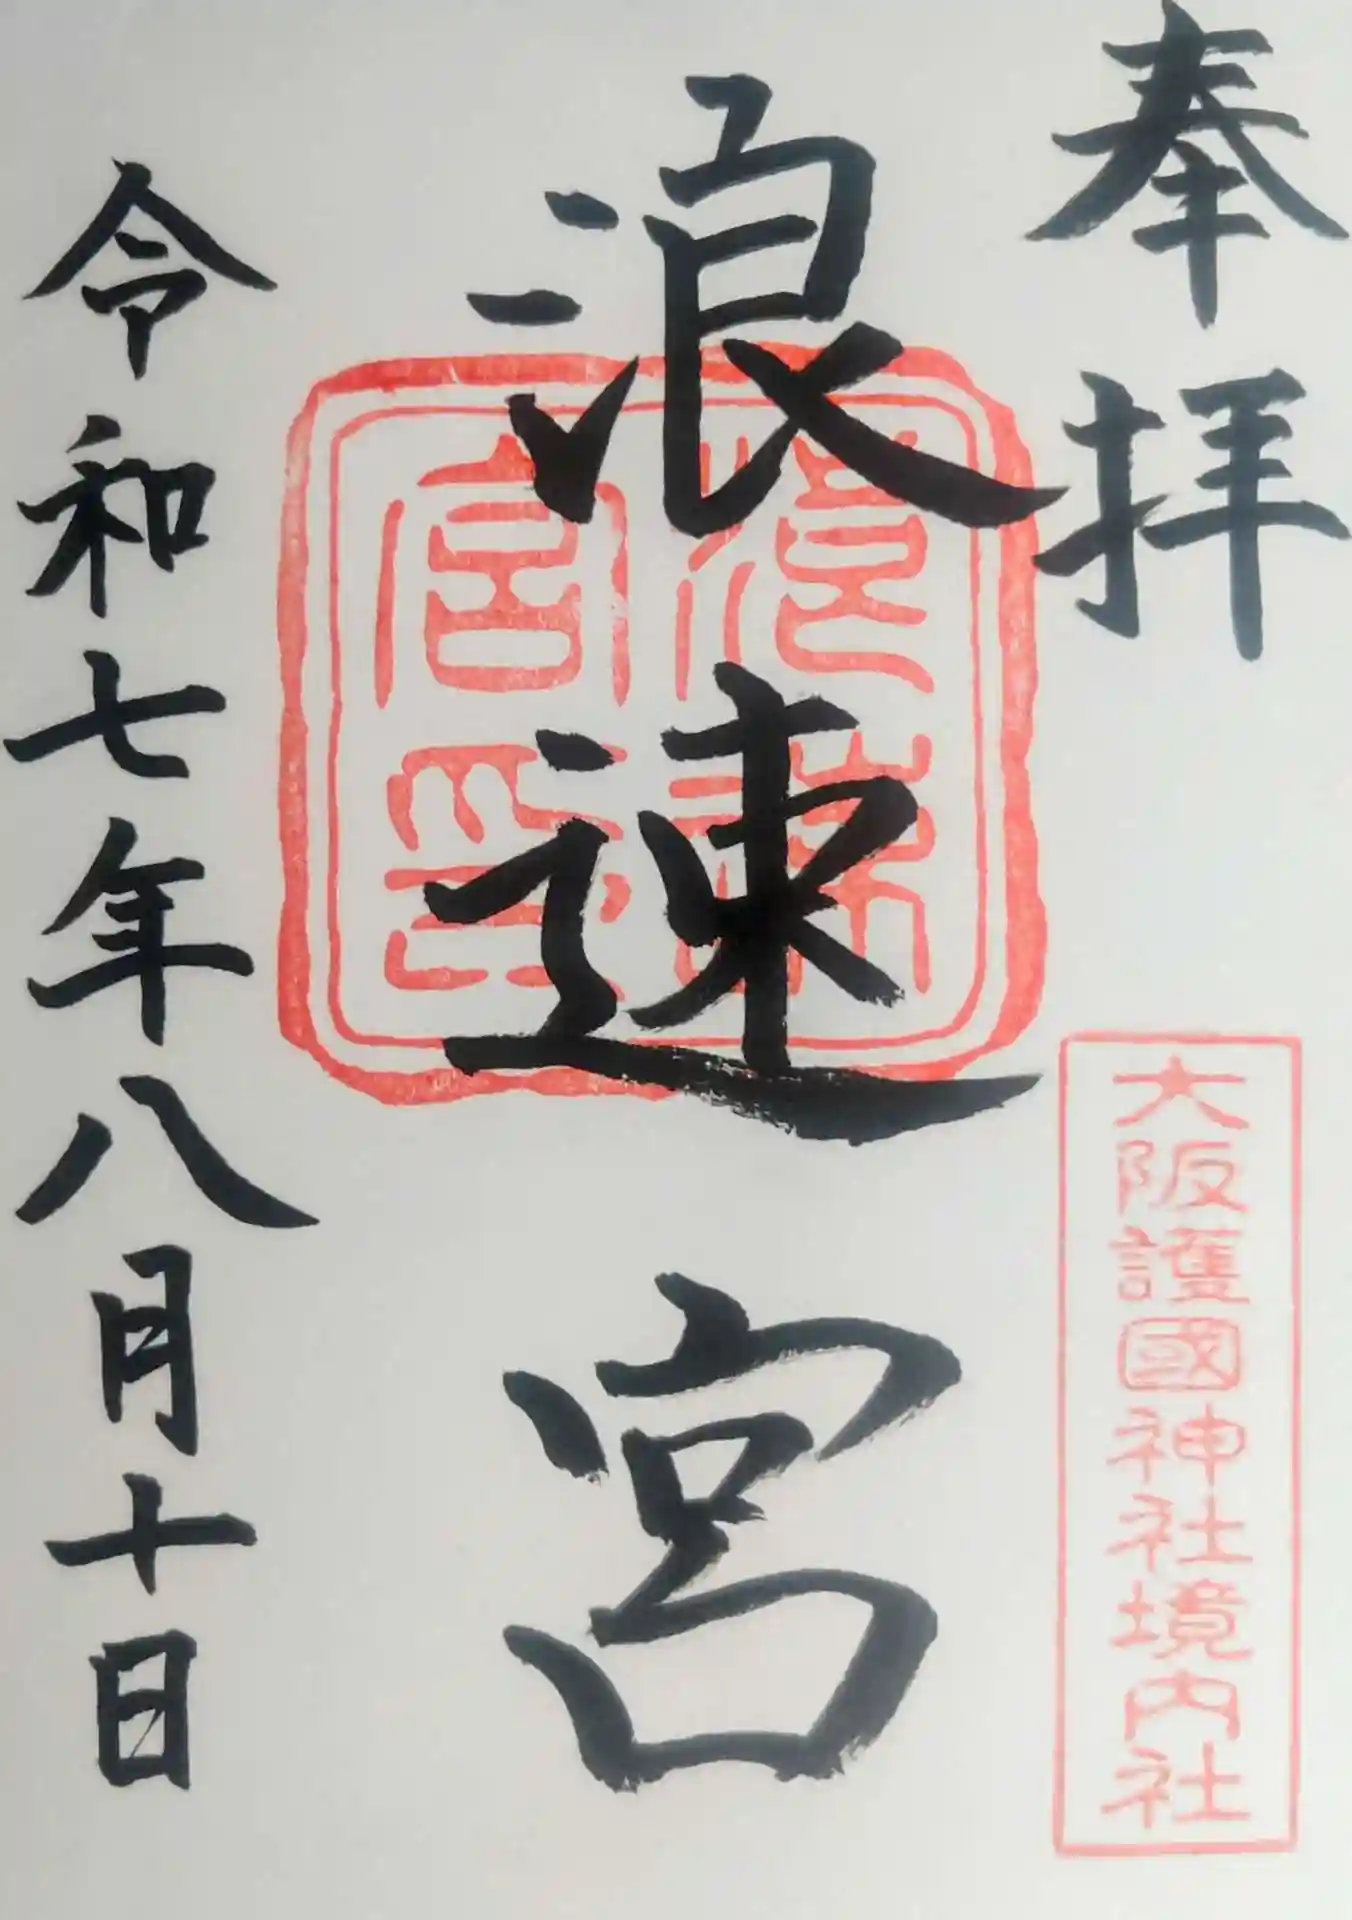 奉拝
大阪護國神社境内社
浪速宮
浪速宮印
令和七年八月十日